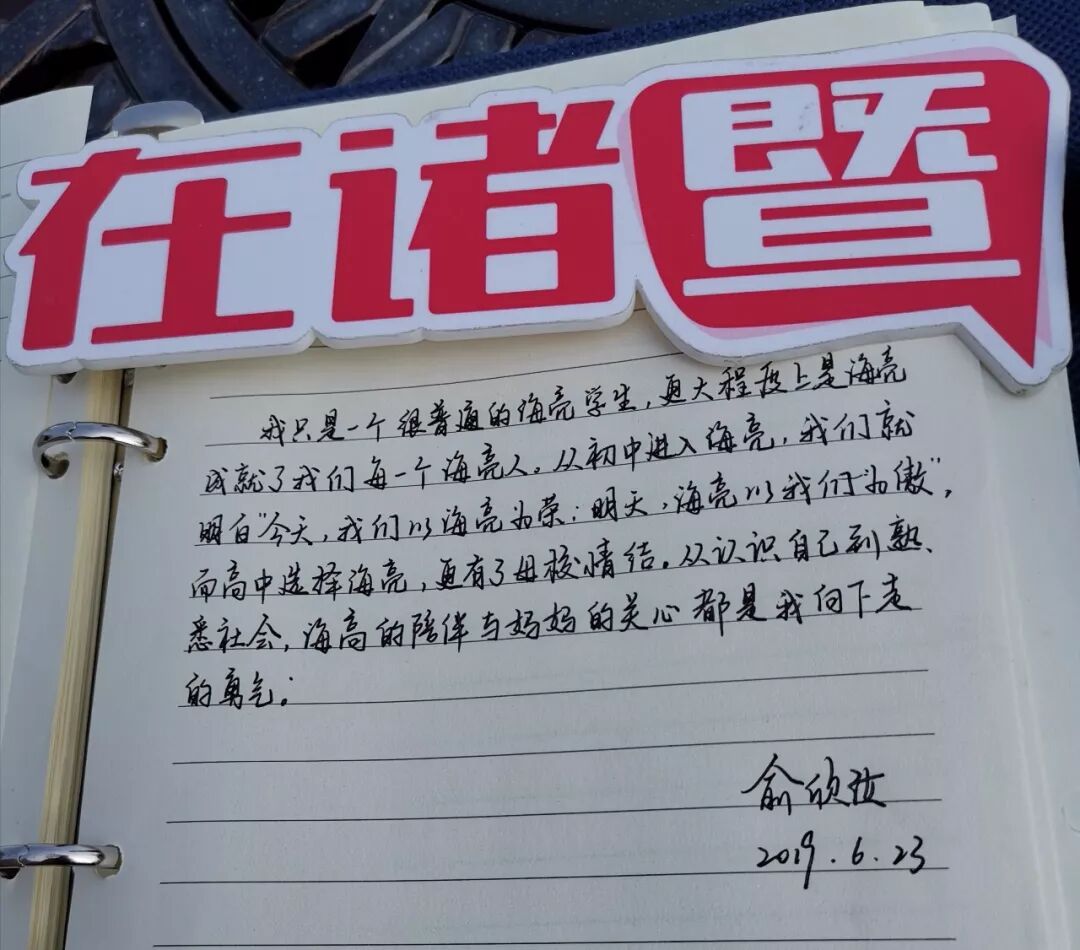 在诸暨
我只是一个很普通的海亮学生，更大程度上是海亮
成就了我们每一个海亮人。从初中进入海亮，我们就
明白“今天，我们以海亮为荣；明天，海亮以我们为傲”，
而高中选择海亮，更有了母校情结。从认识自己到熟
悉社会，海高的陪伴与妈妈的关心都是我向下走
的勇气。
俞欣孜
2019.6.23